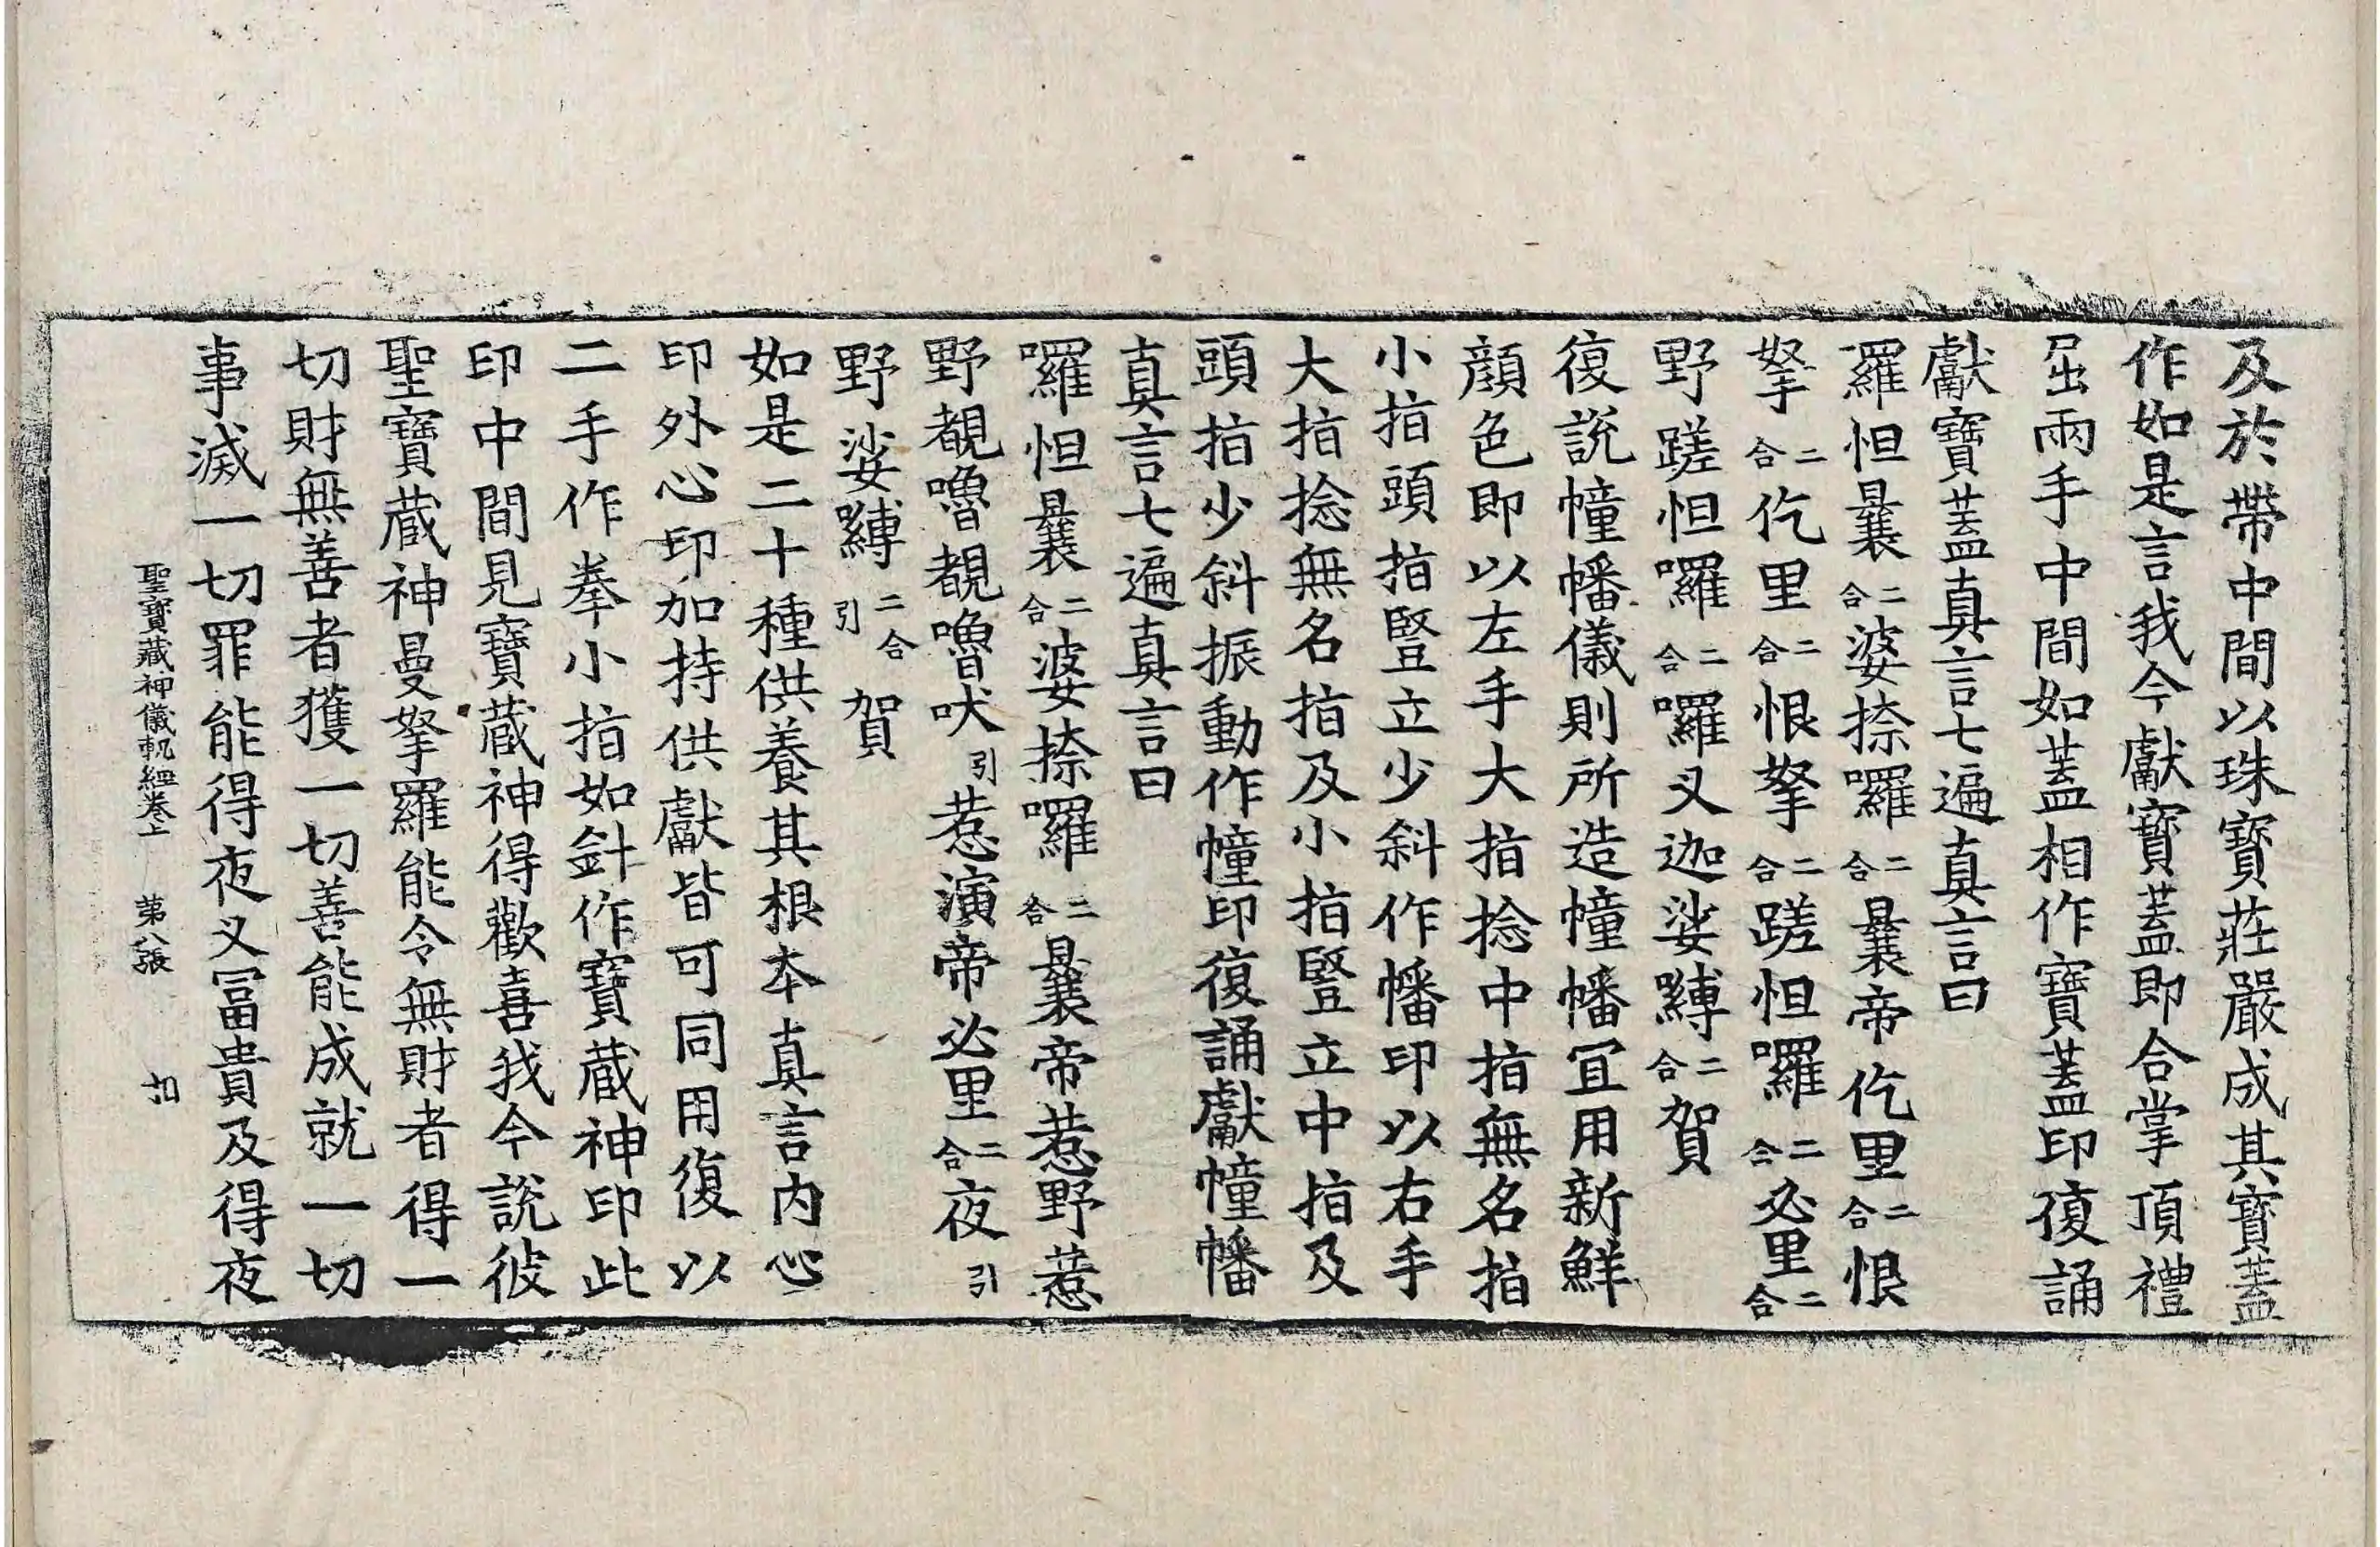 及於帶中間以珠寶莊嚴成其寶蓋
作如是言我今獻寶蓋即合掌頂禮
屈兩手中間如蓋相作寶蓋印復誦
獻寶蓋真言七遍真言曰
羅怛曩二合婆捺囉二合曩帝仡里二合恨
拏二合仡里二合恨拏二合蹉怛囉二合必里二合
野蹉怛囉二合囉叉迦娑縛二合賀
復說幢幡儀則所造幢幡宜用新鮮
顔色即以左手大指捻中指無名指
小指頭指豎立少斜作幡印以右手
大指捻無名指及小指豎立中指及
頭指少斜振動作幢印復誦獻幢幡
真言七遍真言曰
囉怛曩二合婆捺囉二合曩帝惹野惹
野覩嚕覩嚕吠引惹演帝必里二合夜引
野娑縛二合引賀
如是二十種供養其根本真言内心
印外心印加持供獻皆可同用復以
二手作拳小指如針作寶蔵神印此
印中間見寶蔵神得歡喜我今說彼
聖寶蔵神曼拏羅能令無財者得一
切財無善者獲一切善能成就一切
事滅一切罪能得夜叉冨貴及得夜
聖寶藏神儀軌經卷上 第八張